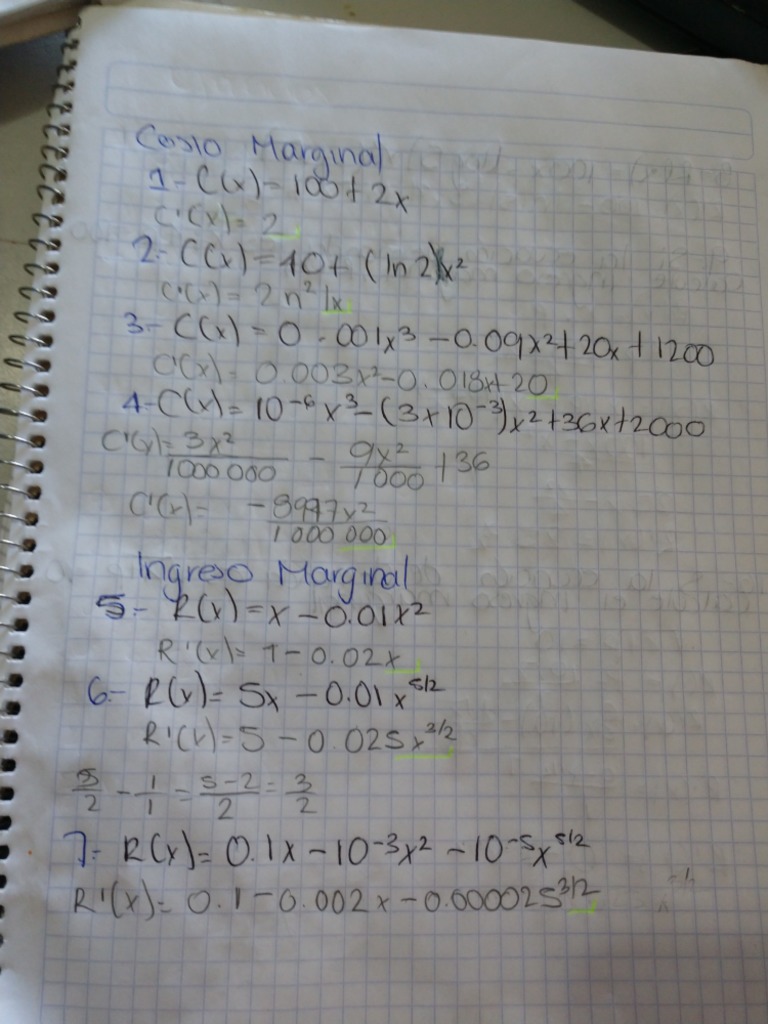 Costo Marginal
1- C(x)= 100 + 2x
C'(x)= 2
2- C(x)= 10 + (ln 2)x²
C'(x)= 2 n² 1x
3- C(x) = 0.001x³ - 0.09x² + 20x + 1200
C'(x)= 0.003x² - 0.018x + 20
4- C(x)= 10⁻⁶x³ - (3x10⁻³)x² + 36x + 2000
C'(x)= 3x²/1000000 - 9x²/1000 + 36
C'(x)= -8997x²/1000000
Ingreso Marginal
5- R(x) = x - 0.01x²
R'(x)= 1 - 0.02x
6- R(x)= 5x - 0.01x^5/2
R'(x)= 5 - 0.025x^3/2
5/2 - 1/1 = 5-2/2 = 3/2
7- R(x)= 0.1x - 10⁻³x² - 10⁻⁵x^5/2
R'(x)= 0.1 - 0.002x - 0.000025^3/2